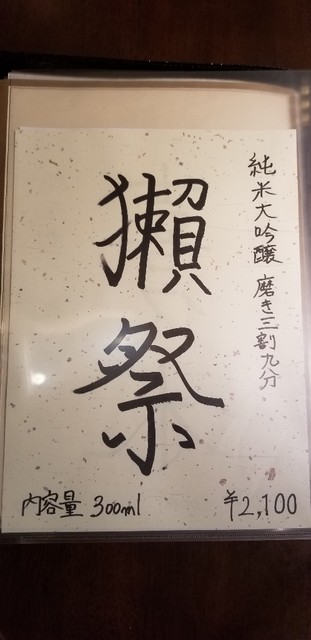 純米大吟醸 磨き三割九分
獺祭
内容量 300ml
¥2,100